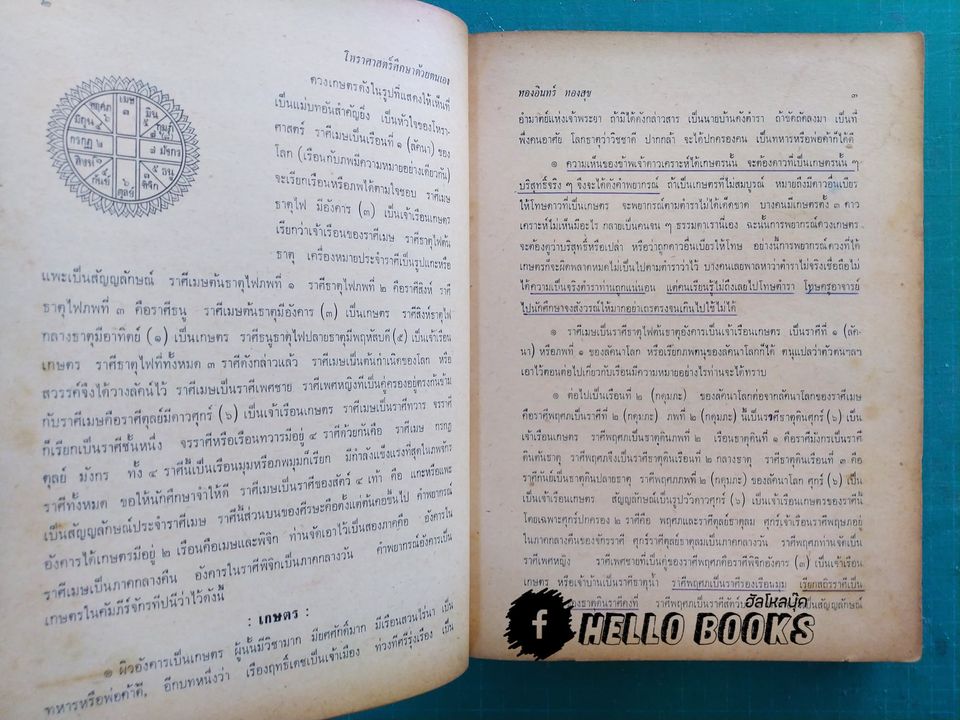 โหราศาสตร์ศึกษาด้วยตนเอง
เมษ
พฤศภ
มีน
มิถุน
กุมภ์
กรกฎ ๒
๗ มังกร
สิงห์ ๑
๕ ธนู
กันย์
ตุลย์
พิจิก
ดวงเกษตรดังในรูปที่แสดงให้เห็นที่
เป็นแม่บทอันสำคัญยิ่ง เป็นหัวใจของโหรา-
ศาสตร์ ราศีเมษเป็นเรือนที่ ๑ (ลัคนา) ของ
โลก (เรือนกับภพมีความหมายอย่างเดียวกัน)
จะเรียกเรือนหรือภพได้ตามใจชอบ ราศีเมษ
ธาตุไฟ มีอังคาร (๓) เป็นเจ้าเรือนเกษตร
เรียกว่าเจ้าเรือนของราศีเมษ ราศีธาตุไฟต้น
ธาตุ เครื่องหมายประจำราศีเป็นรูปแกะหรือ
แพะเป็นสัญญลักษณ์ ราศีเมษต้นธาตุไฟภพที่ ๑ ราศีธาตุไฟภพที่ ๒ คือราศีสิงห์ ราศี
ธาตุไฟภพที่ ๓ คือราศีธนู ราศีเมษต้นธาตุมีอังคาร (๓) เป็นเกษตร ราศีสิงห์ธาตุไฟ
กลางธาตุมีอาทิตย์ (๑) เป็นเกษตร ราศีธนูธาตุไฟปลายธาตุมีพฤหัสบดี (๕) เป็นเจ้าเรือน
เกษตร ราศีธาตุไฟที่ทั้งหมด ๓ ราศีดังกล่าวแล้ว ราศีเมษเป็นต้นกำเนิดของโลก หรือ
สวรรค์จึงได้วางลัคน์ไว้ ราศีเมษเป็นราศีเพศชาย ราศีเพศหญิงที่เป็นคู่ครองอยู่ตรงกันข้าม
กับราศีเมษคือราศีตุลย์มีดาวศุกร์ (๖) เป็นเจ้าเรือนเกษตร ราศีเมษเป็นราศีทวาร จรราศี
ก็เรียกเป็นราศีชั้นหนึ่ง จรราศีหรือเรือนทวารมีอยู่ ๔ ราศีด้วยกันคือ ราศีเมษ กรกฎ
ตุลย์ มังกร ทั้ง ๔ ราศีนี้เป็นเรือนมุมหรือภพมุมก็เรียก มีกำลังแข็งแรงที่สุดในภพจักร
ราศีทั้งหมด ขอให้นักศึกษาจำให้ดี ราศีเมษเป็นราศีของสัตว์ ๔ เท้า คือ แกะหรือแพะ
เป็นสัญญลักษณ์ประจำราศีเมษ ราศีนี้ส่วนบนของศีรษะคือตั้งแต่ต้นคอขึ้นไป คำพยากรณ์
อังคารได้เกษตรมีอยู่ ๒ เรือนคือเมษและพิจิก ท่านจัดเอาไว้เป็นสองภาคคือ อังคารใน
ราศีเมษเป็นภาคกลางคืน อังคารในราศีพิจิกเป็นภาคกลางวัน คำพยากรณ์อังคารเป็น
เกษตรในคัมภีร์จักรทีปนีว่าไว้ดังนี้
: เกษตร :
๑ ผิวอังคารเป็นเกษตร ผู้นั้นมีวิชามาก มียศศักดิ์มาก มีเรือนสวนไร่นา เป็น
ทหารหรือพ่อค้าดี, อีกบทหนึ่งว่า เรืองฤทธิ์เดชเป็นเจ้าเมือง ท่วงทีศรีรุ่งเรือง เป็น
ทองอินทร์ ทองสุข
๓
อำมาตย์แห่งเจ้าพระยา ถ้ามิได้ดังกล่าวสาร เป็นนายบ้านดังตำรา ถ้าขัดคัดลงมา เป็นที่
พึ่งคนอาศัย โลกธาตุว่าวิชชาดี ปากกล้า จะได้ปกครองคน เป็นทหารหรือพ่อค้าก็ได้ดี
๑ ความเห็นของข้าพเจ้าดาวเคราะห์ได้เกษตรนั้น จะต้องดาวที่เป็นเกษตรนั้น ๆ
บริสุทธิ์จริง ๆ จึงจะได้ดังคำพยากรณ์ ถ้าเป็นเกษตรที่ไม่สมบูรณ์ หมายถึงมีดาวอื่นเบียฬ
ให้โทษดาวที่เป็นเกษตร จะพยากรณ์ตามตำราไม่ได้เด็ดขาด บางคนมีเกษตรตั้ง ๓ ดาว
เคราะห์ไม่เห็นมีอะไร กลายเป็นคนจน ๆ ธรรมดาเรานี่เอง ฉะนั้นการพยากรณ์ดวงเกษตร
จะต้องดูว่าบริสุทธิ์หรือเปล่า หรือว่าถูกดาวอื่นเบียฬให้โทษ อย่างนี้การพยากรณ์ดวงที่ได้
เกษตรก็จะผิดพลาดหมดไม่เป็นไปตามตำราว่าไว้ บางคนเลยพาลหาว่าตำราไม่จริงเชื่อถือไม่
ได้ความเป็นจริงตำราท่านถูกแน่นอน แต่คนเรียนรู้ไม่ถึงเลยไปโทษตำรา โทษครูอาจารย์
ไปนักศึกษาจงสังวรณ์ให้มากอย่าเถรตรงจนเกินไปใช้ไม่ได้
๑ ราศีเมษเป็นราศีธาตุไฟต้นธาตุอังคารเป็นเจ้าเรือนเกษตร เป็นราศีที่ ๑ (ลัค-
นา) หรือภพที่ ๑ ของลัคนาโลก หรือเรียกภพตนุของลัคนาโลกก็ได้ ตนุแปลว่าตัวตนฯลฯ
เอาไว้ตอนต่อไปเกี่ยวกับเรือนมีความหมายอย่างไรท่านจะได้ทราบ
๑ ต่อไปเป็นเรือนที่ ๒ (กดุมภะ) ของลัคนาโลกต่อจากลัคนาโลกของราศีเมษ
คือราศีพฤศภเป็นราศีที่ ๒ (กดุมภะ) ภพที่ ๒ (กดุมภะ) นี้เป็นราศีธาตุดินศุกร์ (๖) เป็น
เจ้าเรือนเกษตร ราศีพฤศภเป็นธาตุดินภพที่ ๒ เรือนธาตุดินที่ ๑ คือราศีมังกรเป็นราศี
ดินต้นธาตุ ราศีพฤศภจึงเป็นราศีธาตุดินเรือนที่ ๒ กลางธาตุ ราศีธาตุดินเรือนที่ ๓ คือ
ราศีกันย์เป็นธาตุดินปลายธาตุ ราศีพฤศภภพที่ ๒ (กดุมภะ) ของลัคนาโลก ศุกร์ (๖) เป็น
เป็นเจ้าเรือนเกษตร สัญญลักษณ์เป็นรูปวัวดาวศุกร์ (๖) เป็นเจ้าเรือนเกษตรของราศีนี้
โดยเฉพาะศุกร์ปกครอง ๒ ราศีคือ พฤศภและราศีตุลย์ธาตุลม ศุกร์เจ้าเรือนราศีพฤษภอยู่
ในภาคกลางคืนของจักรราศี ศุกร์ราศีตุลย์ธาตุลมเป็นภาคกลางวัน ราศีพฤศภท่านจัดเป็น
ราศีเพศหญิง ราศีเพศชายที่เป็นคู่ของราศีพฤศภคือราศีพิจิกอังคาร (๓) เป็นเจ้าเรือน
เกษตร หรือเจ้าบ้านเป็นราศีธาตุน้ำ ราศีพฤศภเป็นราศีรองเรือนมุม เรียกสถิรราศีเป็น
ของธาตุดินราศีคงที่ ราศีพฤศภเป็นราศีสัตว์ เป็นสัญญลักษณ์
ฮัลโหลบุ๊ค
f HELLO BOOKS